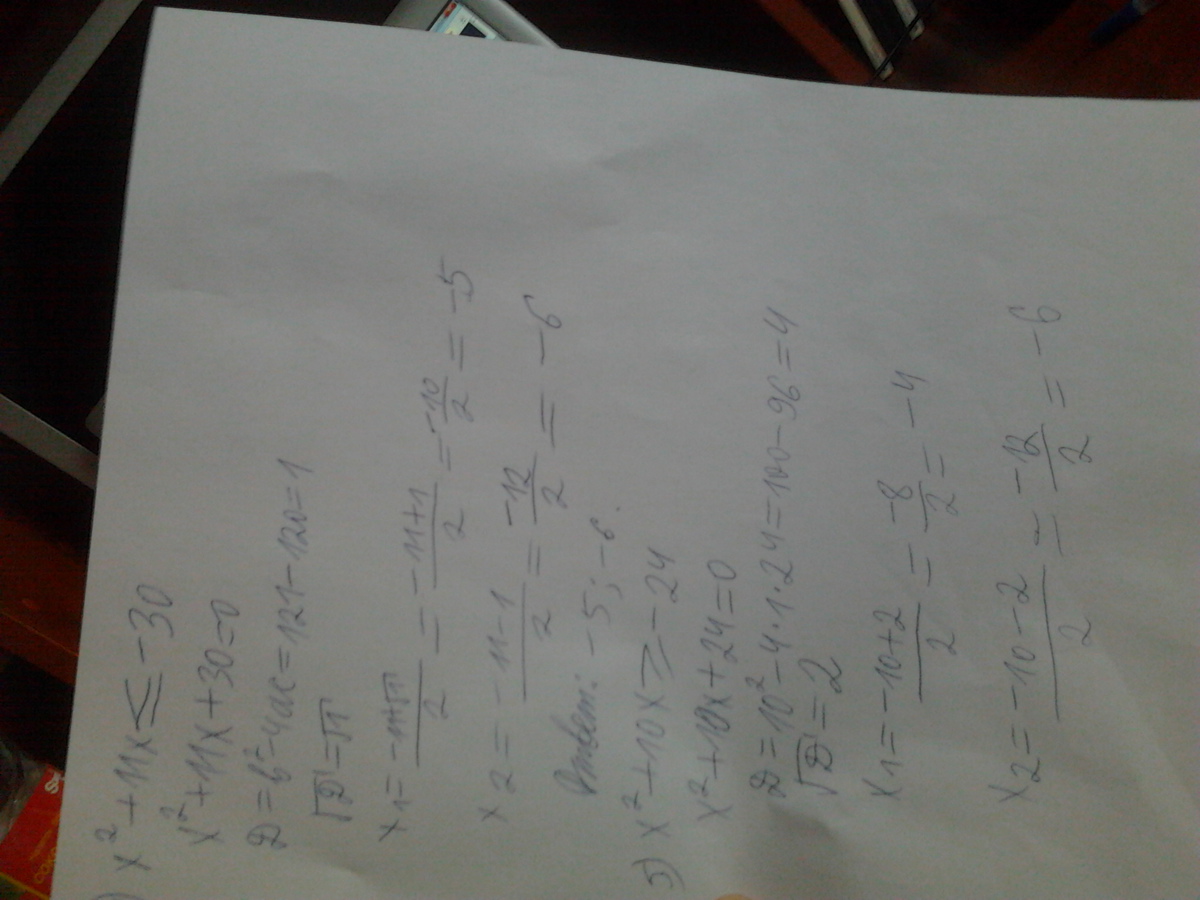 ) x² + 11x ≤ -30
x² + 11x + 30 = 0
D = b² - 4ac = 121 - 120 = 1
√D = √1
x₁ = -11+√1/2 = -11+1/2 = -10/2 = -5
x₂ = -11-1/2 = -12/2 = -6
Ответ: -5; -6.
5) x² + 10x ≥ -24
x² + 10x + 24 = 0
D = 10² - 4·1·24 = 100 - 96 = 4
√D = 2
x₁ = -10+2/2 = -8/2 = -4
x₂ = -10-2/2 = -12/2 = -6